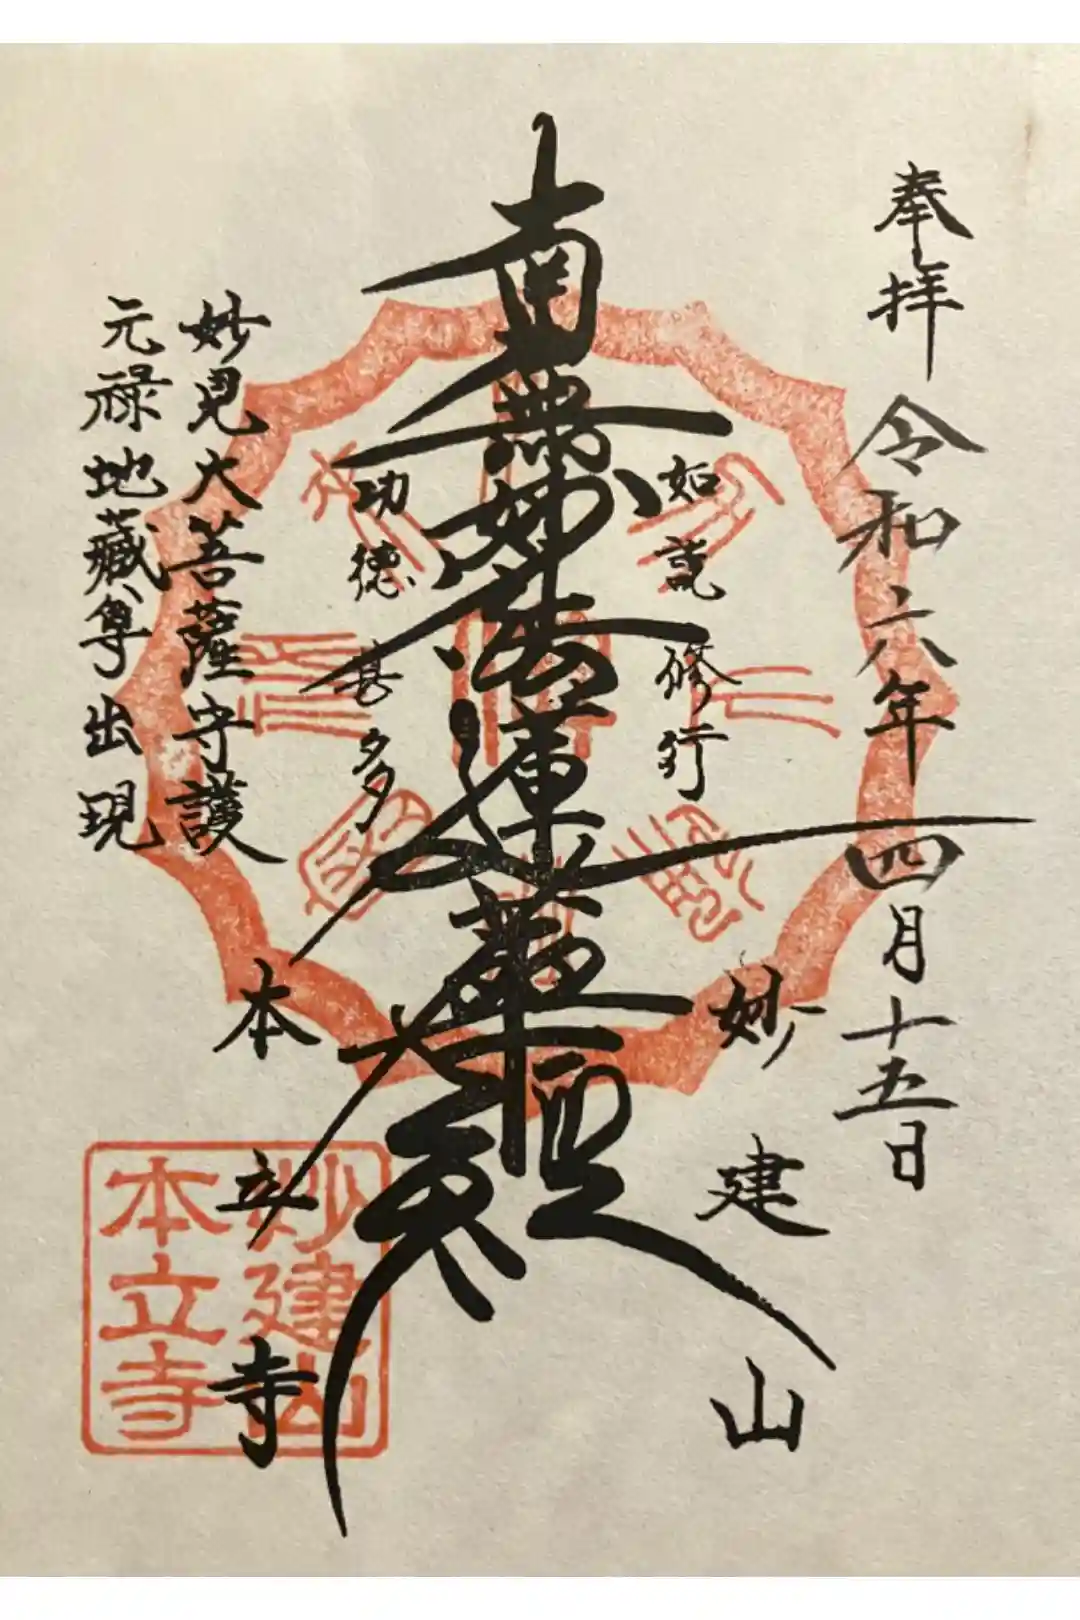 奉拝 令和六年四月十五日
如説修行
妙建山
南無妙法蓮華經
功徳甚多
本立寺
妙見大菩薩守護
元禄地蔵尊出現
妙建山
本立寺